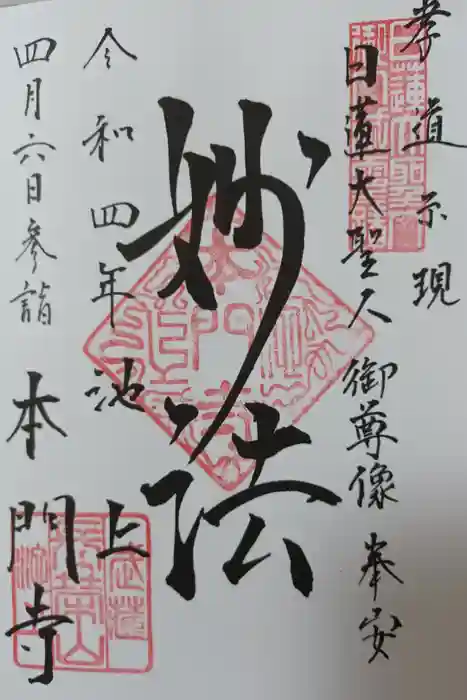 孝道示現
日蓮大聖人御尊像奉安
妙法
令和四年 池上
四月六日参詣 本門寺